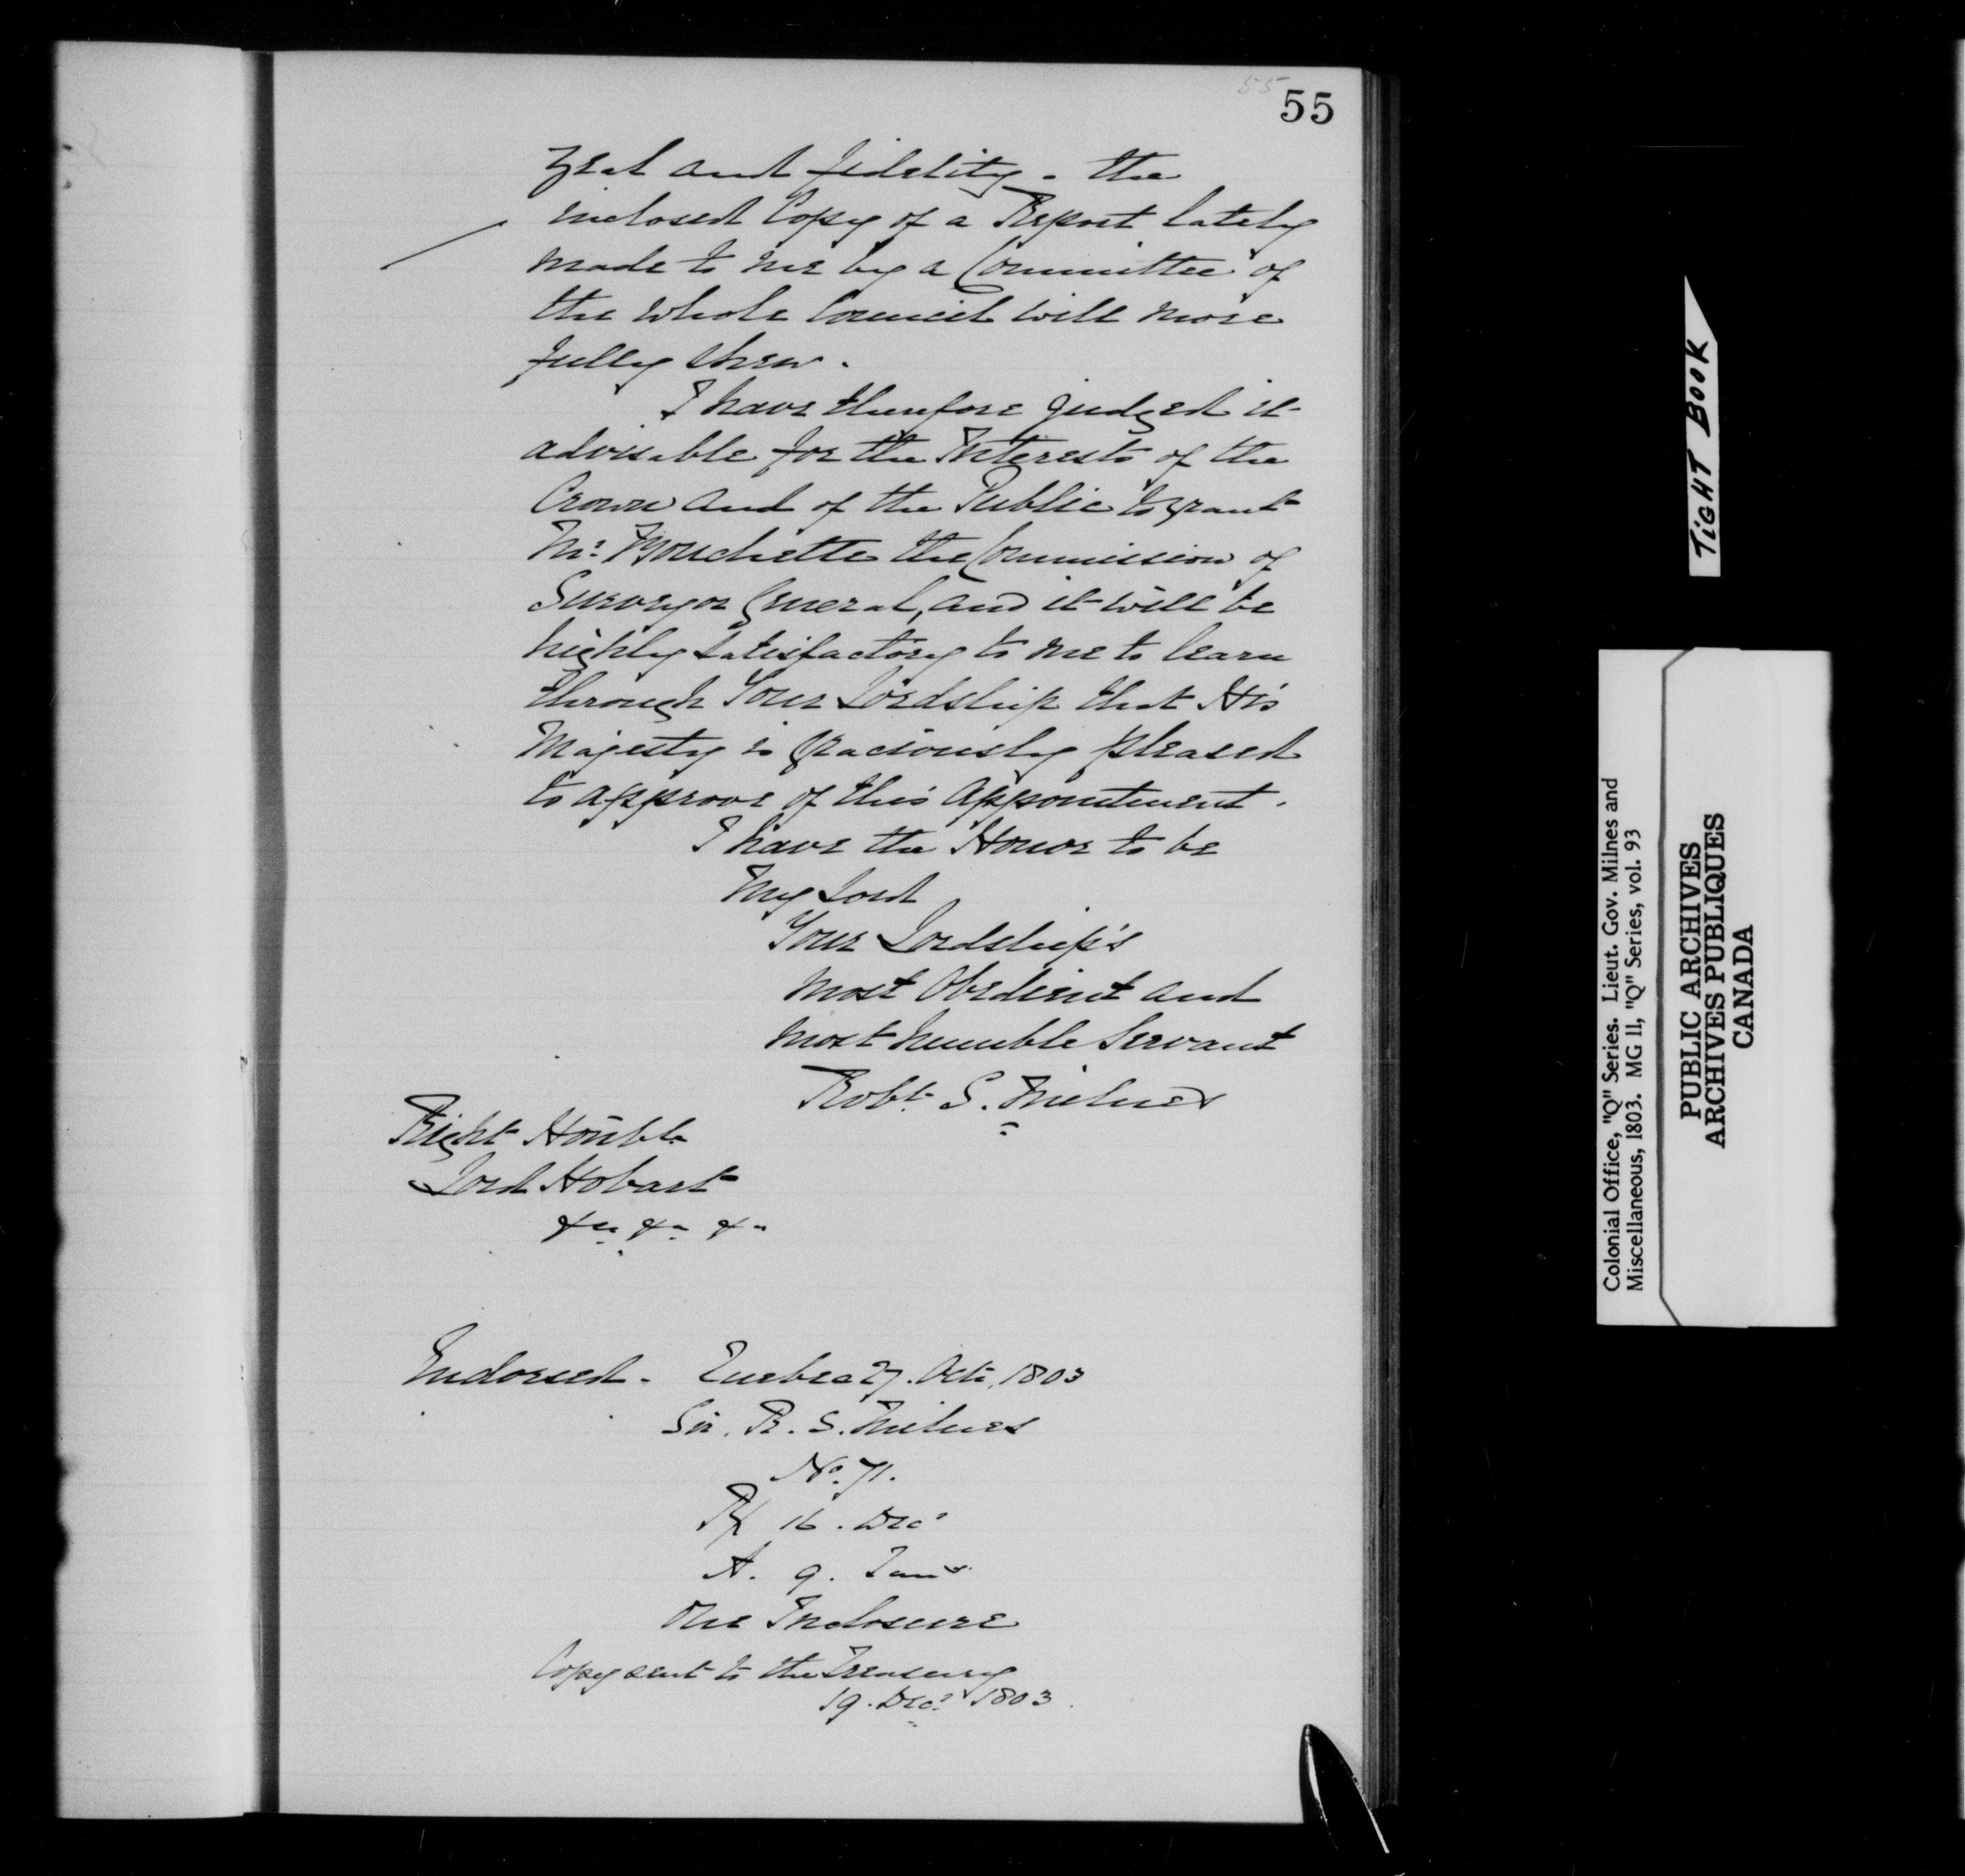 55
55
zeal and fidelity. the
inclosed Copy of a Report lately
made to me by a Committee of
the whole Council will more
fully shew.
I have therefore judged it
advisable for the Interests of the
Crown and of the Public to grant
Mr. Bouchette the Commission of
Surveyor General, and it will be
highly satisfactory to me to learn
through Your Lordship that His
Majesty is graciously pleased
to approve of this appointment.
I have the Honor to be
My Lord
Your Lordship's
most Obedient and
most humble Servant
Robt. S. Milnes
Right Honble
Lord Hobart
&c. &c. &c.
Endorsed. Quebec 27. Octr. 1803
Sir. R. S. Milnes
No. 71.
R/ 16. Decr
A. 9. Jany
One Inclosure
Copy sent to the Treasury
19. Decr 1803.
TIGHT BOOK
Colonial Office, "Q" Series. Lieut. Gov. Milnes and
Miscellaneous, 1803. MG 11, "Q" Series, vol. 93
PUBLIC ARCHIVES
ARCHIVES PUBLIQUES
CANADA